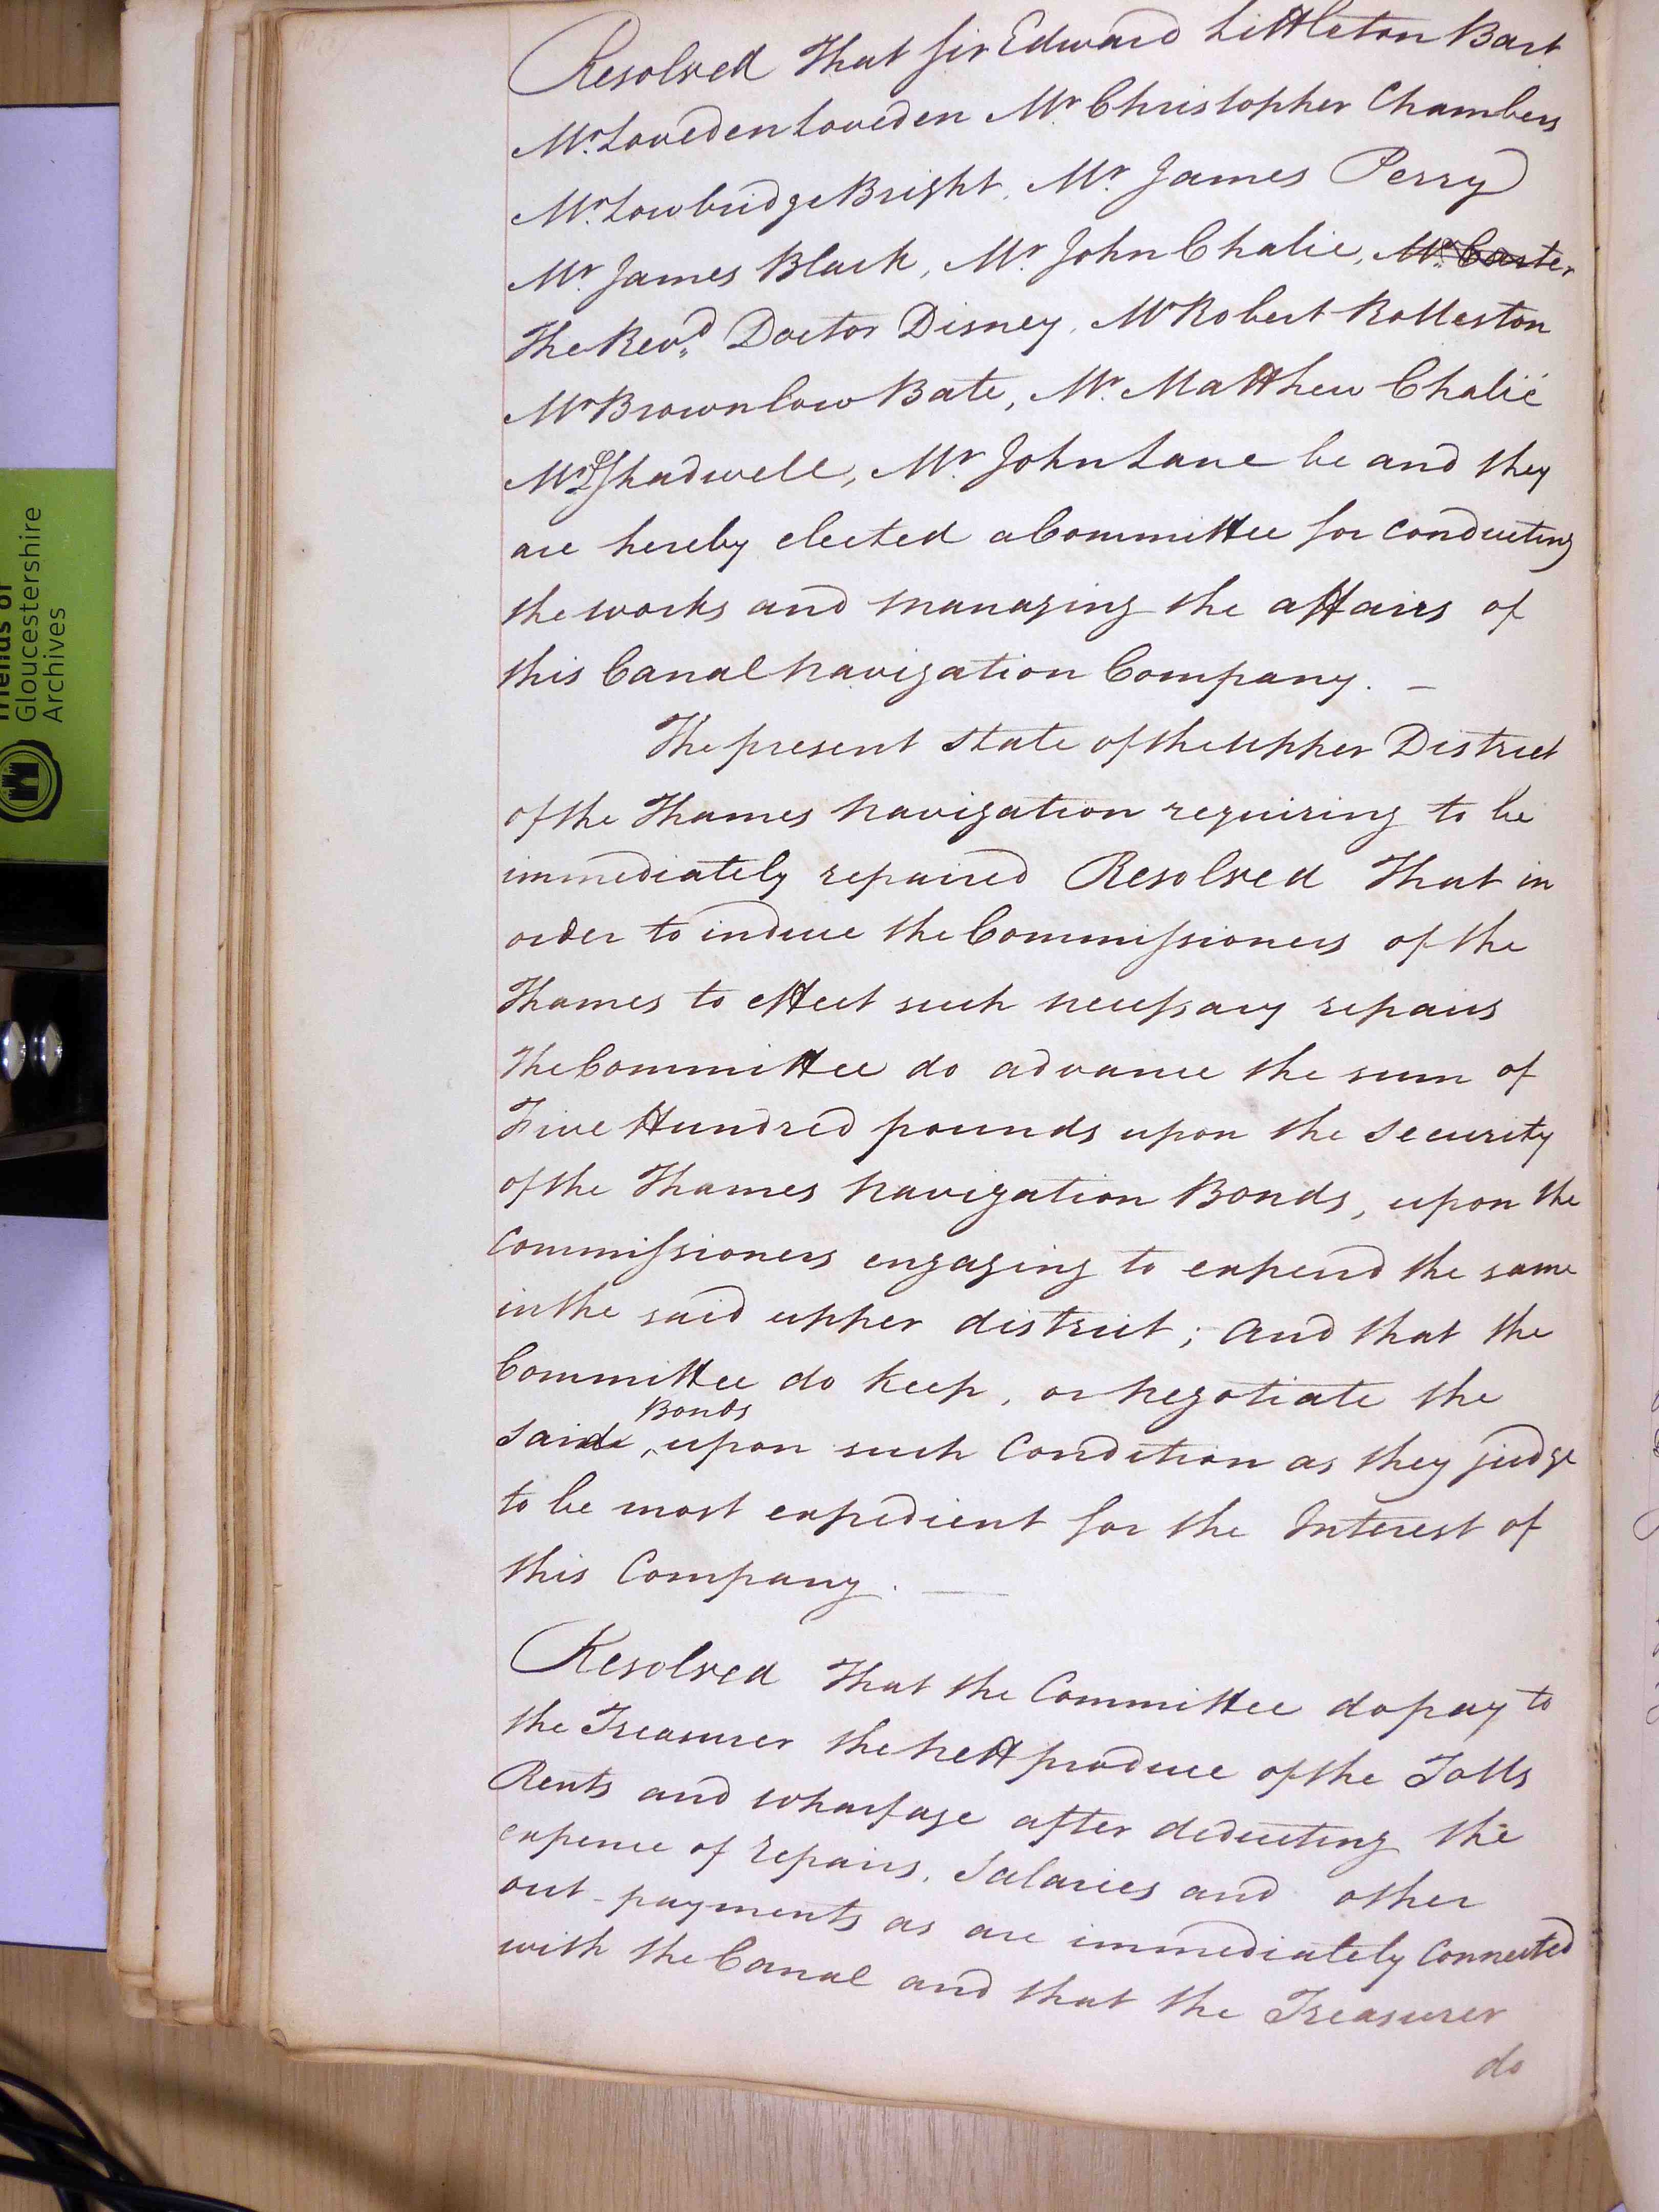 Resolved That Sir Edward Littleton Bart.
Mr. Loveden Loveden Mr. Christopher Chambers
Mr. Lowbridge Bright, Mr. James Perry
Mr. James Black, Mr. John Chalie, Mr. Carter
The Revd. Doctor Disney, Mr Robert Rolleston
Mr Brownlow Bate, Mr. Matthew Chalié
Mr L Shadwell, Mr. John Lane be and they
are hereby elected a Committee for conducting
the works and managing the affairs of
this Canal Navigation Company. –
The present state of the upper District
of the Thames Navigation requiring to be
immediately repaired Resolved That in
order to induce the Commissioners of the
Thames to effect such necessary repairs
The Committee do advance the sum of
Five Hundred pounds upon the security
of the Thames Navigation Bonds, upon the
Commissioners engaging to expend the same
in the said upper district; and that the
Committee do keep, or negotiate the
said Bonds upon such Condition as they judge
to be most expedient for the Interest of
this Company. —
Resolved That the Committee do pay to
the Treasurer the nett produce of the Tolls
Rents and wharfage after deducting the
expence of repairs, Salaries and other
out-payments as are immediately Connected
with the Canal and that the Treasurer
do
Friends of
Gloucestershire
Archives